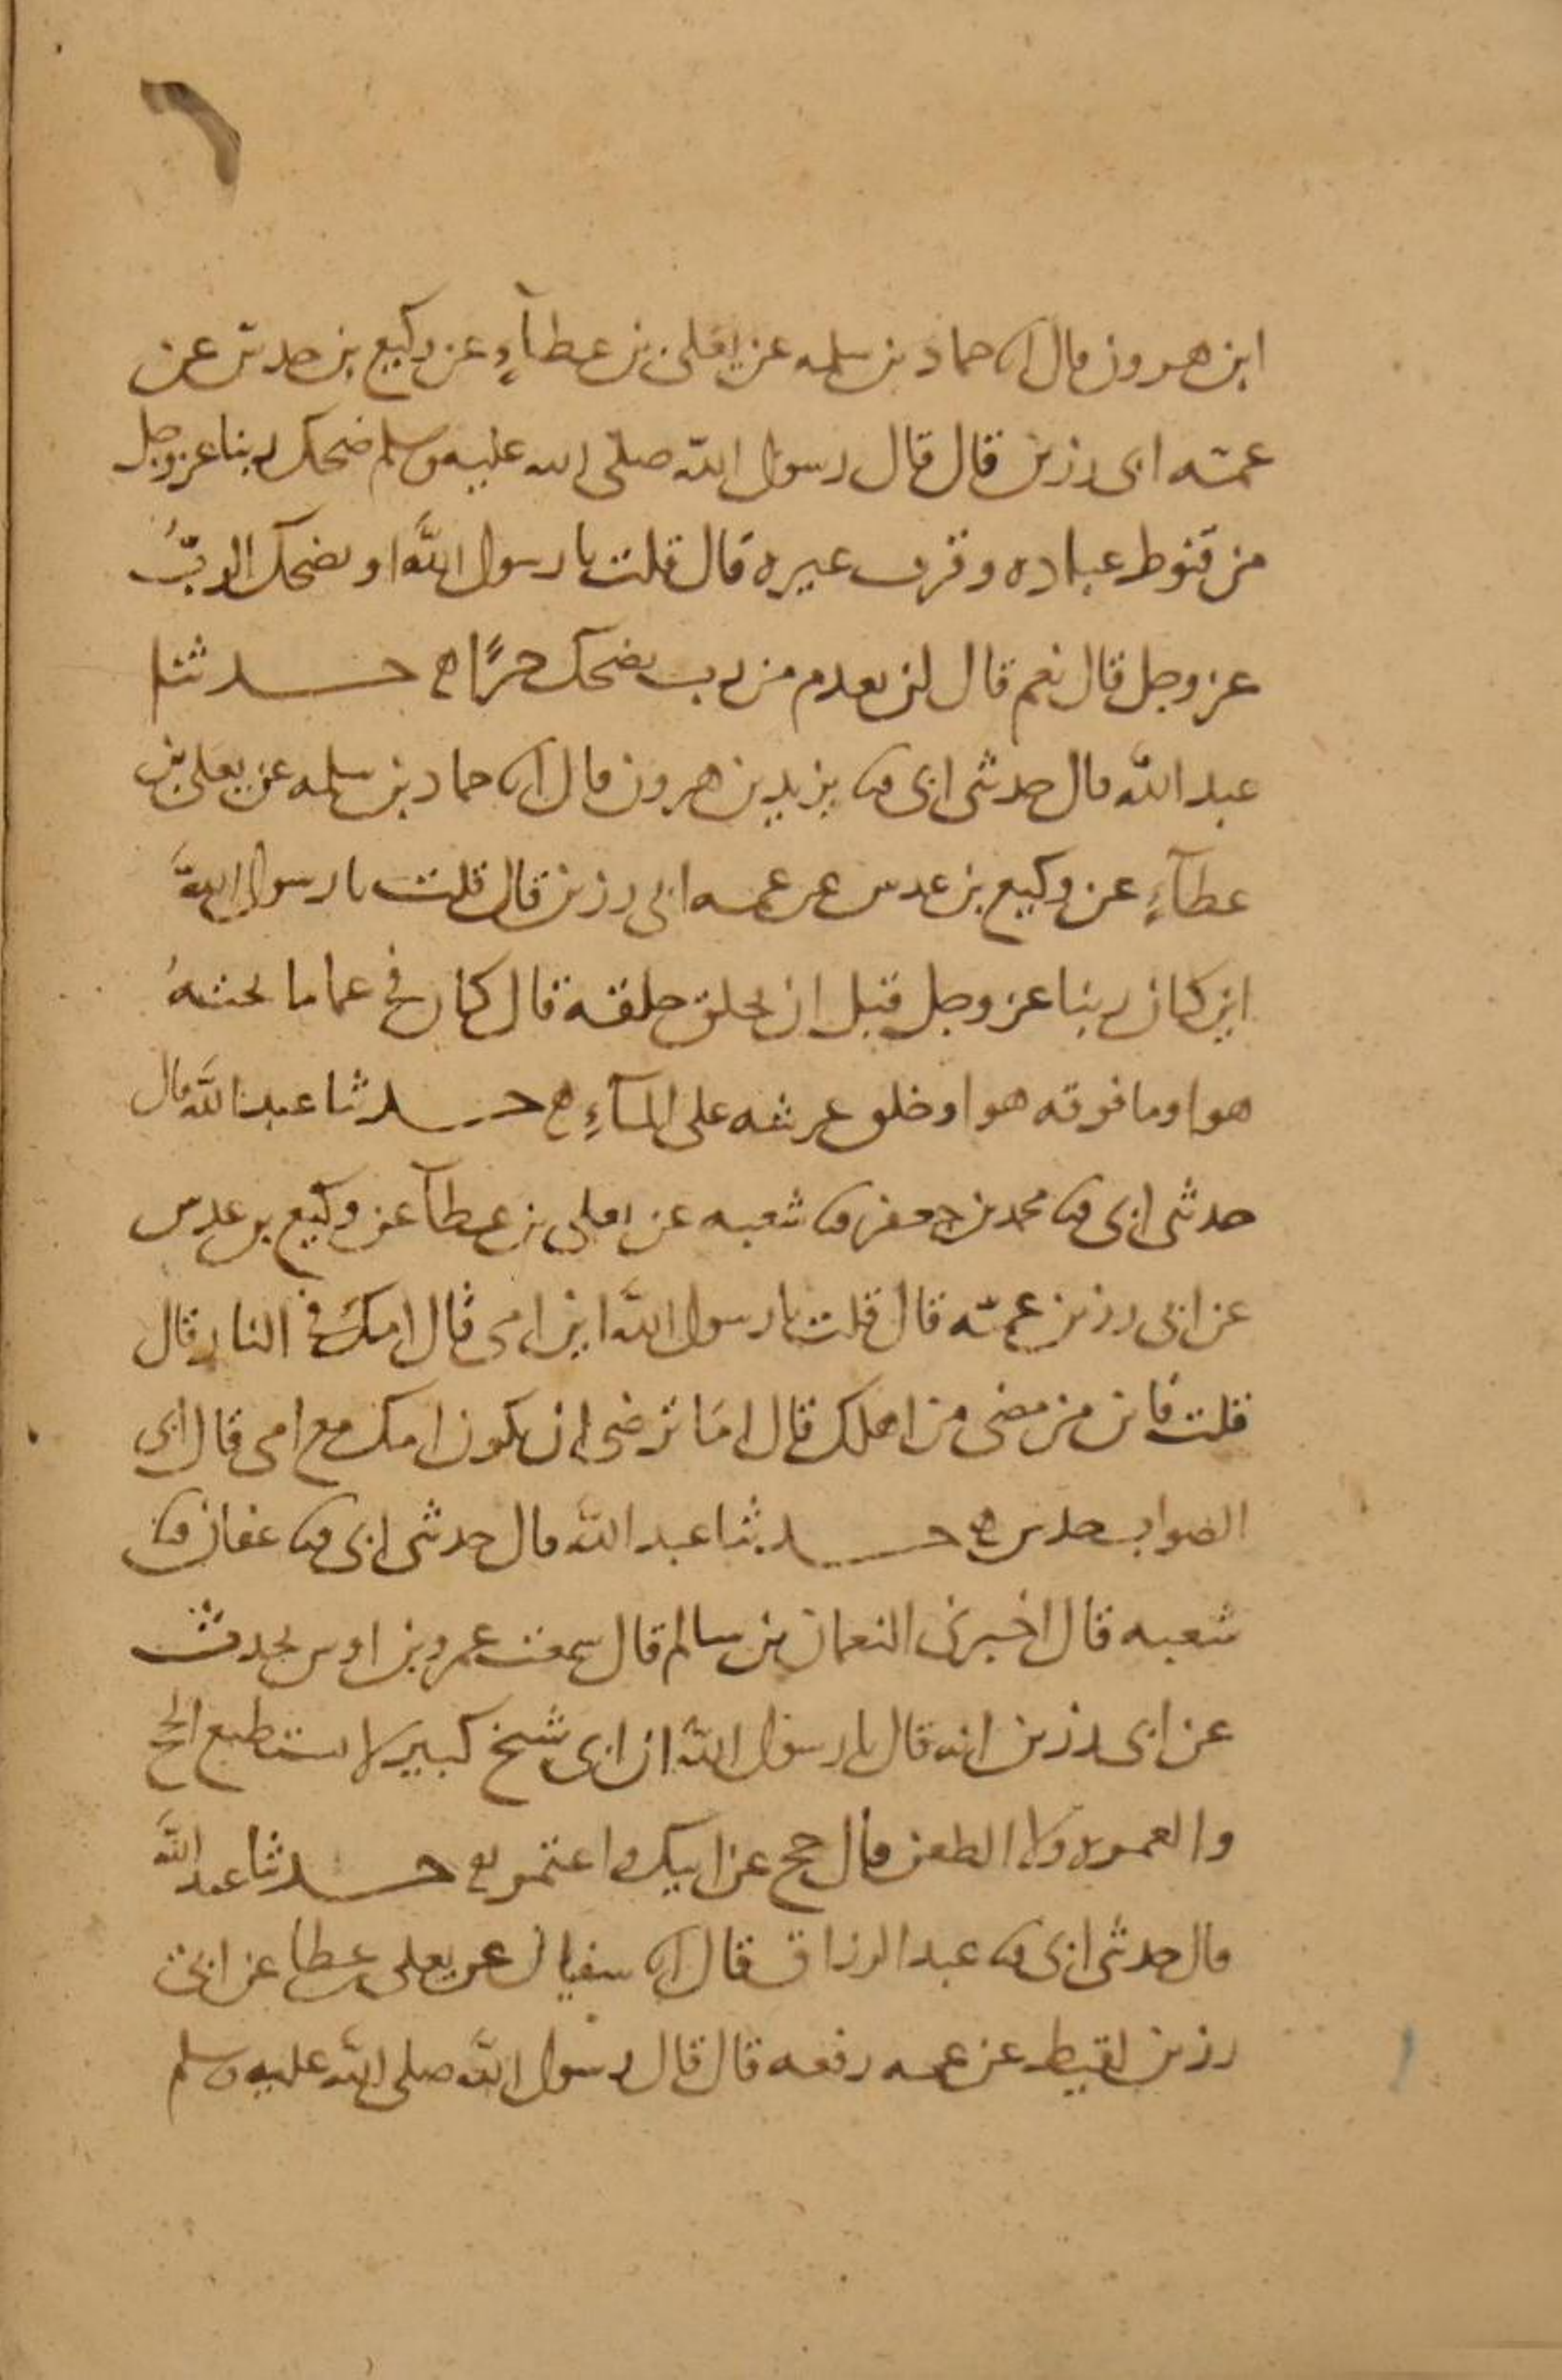 ٦
ابن هرون قال انا حماد بن سلمه عن يعلى بن عطآءٍ عن وكيع بن حدس عن
عمّه ابى رزين قال قال رسول الله صلى الله عليه وسلم ضحك ربنا عز وجل
من قنوط عباده وقرب غيره قال قلت يا رسول الله او يضحك الربُّ
عز وجل قال نعم قال لن نعدم من رب يضحك خيرًا ه حدثنا
عبد الله قال حدثنى ابى ثنا يزيد بن هرون قال انا حماد بن سلمه عن يعلى بن
عطآءٍ عن وكيع بن عدس عن عمه ابى رزين قال قلت يا رسول الله
اين كان ربنا عز وجل قبل ان يخلق خلقه قال كان فى عما ما تحتهُ
هوا وما فوقه هوا وخلق عرشه على المآءِ ه حدثنا عبد الله قال
حدثنى ابى ثنا محمد بن جعفر ثنا شعبه عن يعلى بن عطآ عن وكيع بن عدس
عن ابى رزين عمّه قال قلت يا رسول الله اين امى قال امك فى النار قال
قلت فاين من مضى من اهلك قال اما ترضى ان تكون امك مع امى قال ابى
الصواب حدس ه حدثنا عبد الله قال حدثنى ابى ثنا عفان ثنا
شعبه قال اخبرنى النعمان بن سالم قال سمعت عمرو بن اوس يحدث
عن ابى رزين انه قال يا رسول الله ان ابى شيخ كبير لا يستطيع الحج
والعمره ولا الظعن قال حج عن ابيك واعتمر ه حدثنا عبد الله
قال حدثنى ابى ثنا عبد الرزاق قال انا سفيان عن يعلى بن عطا عن ابى
رزين لقيط عن عمه رفعه قال قال رسول الله صلى الله عليه وسلم